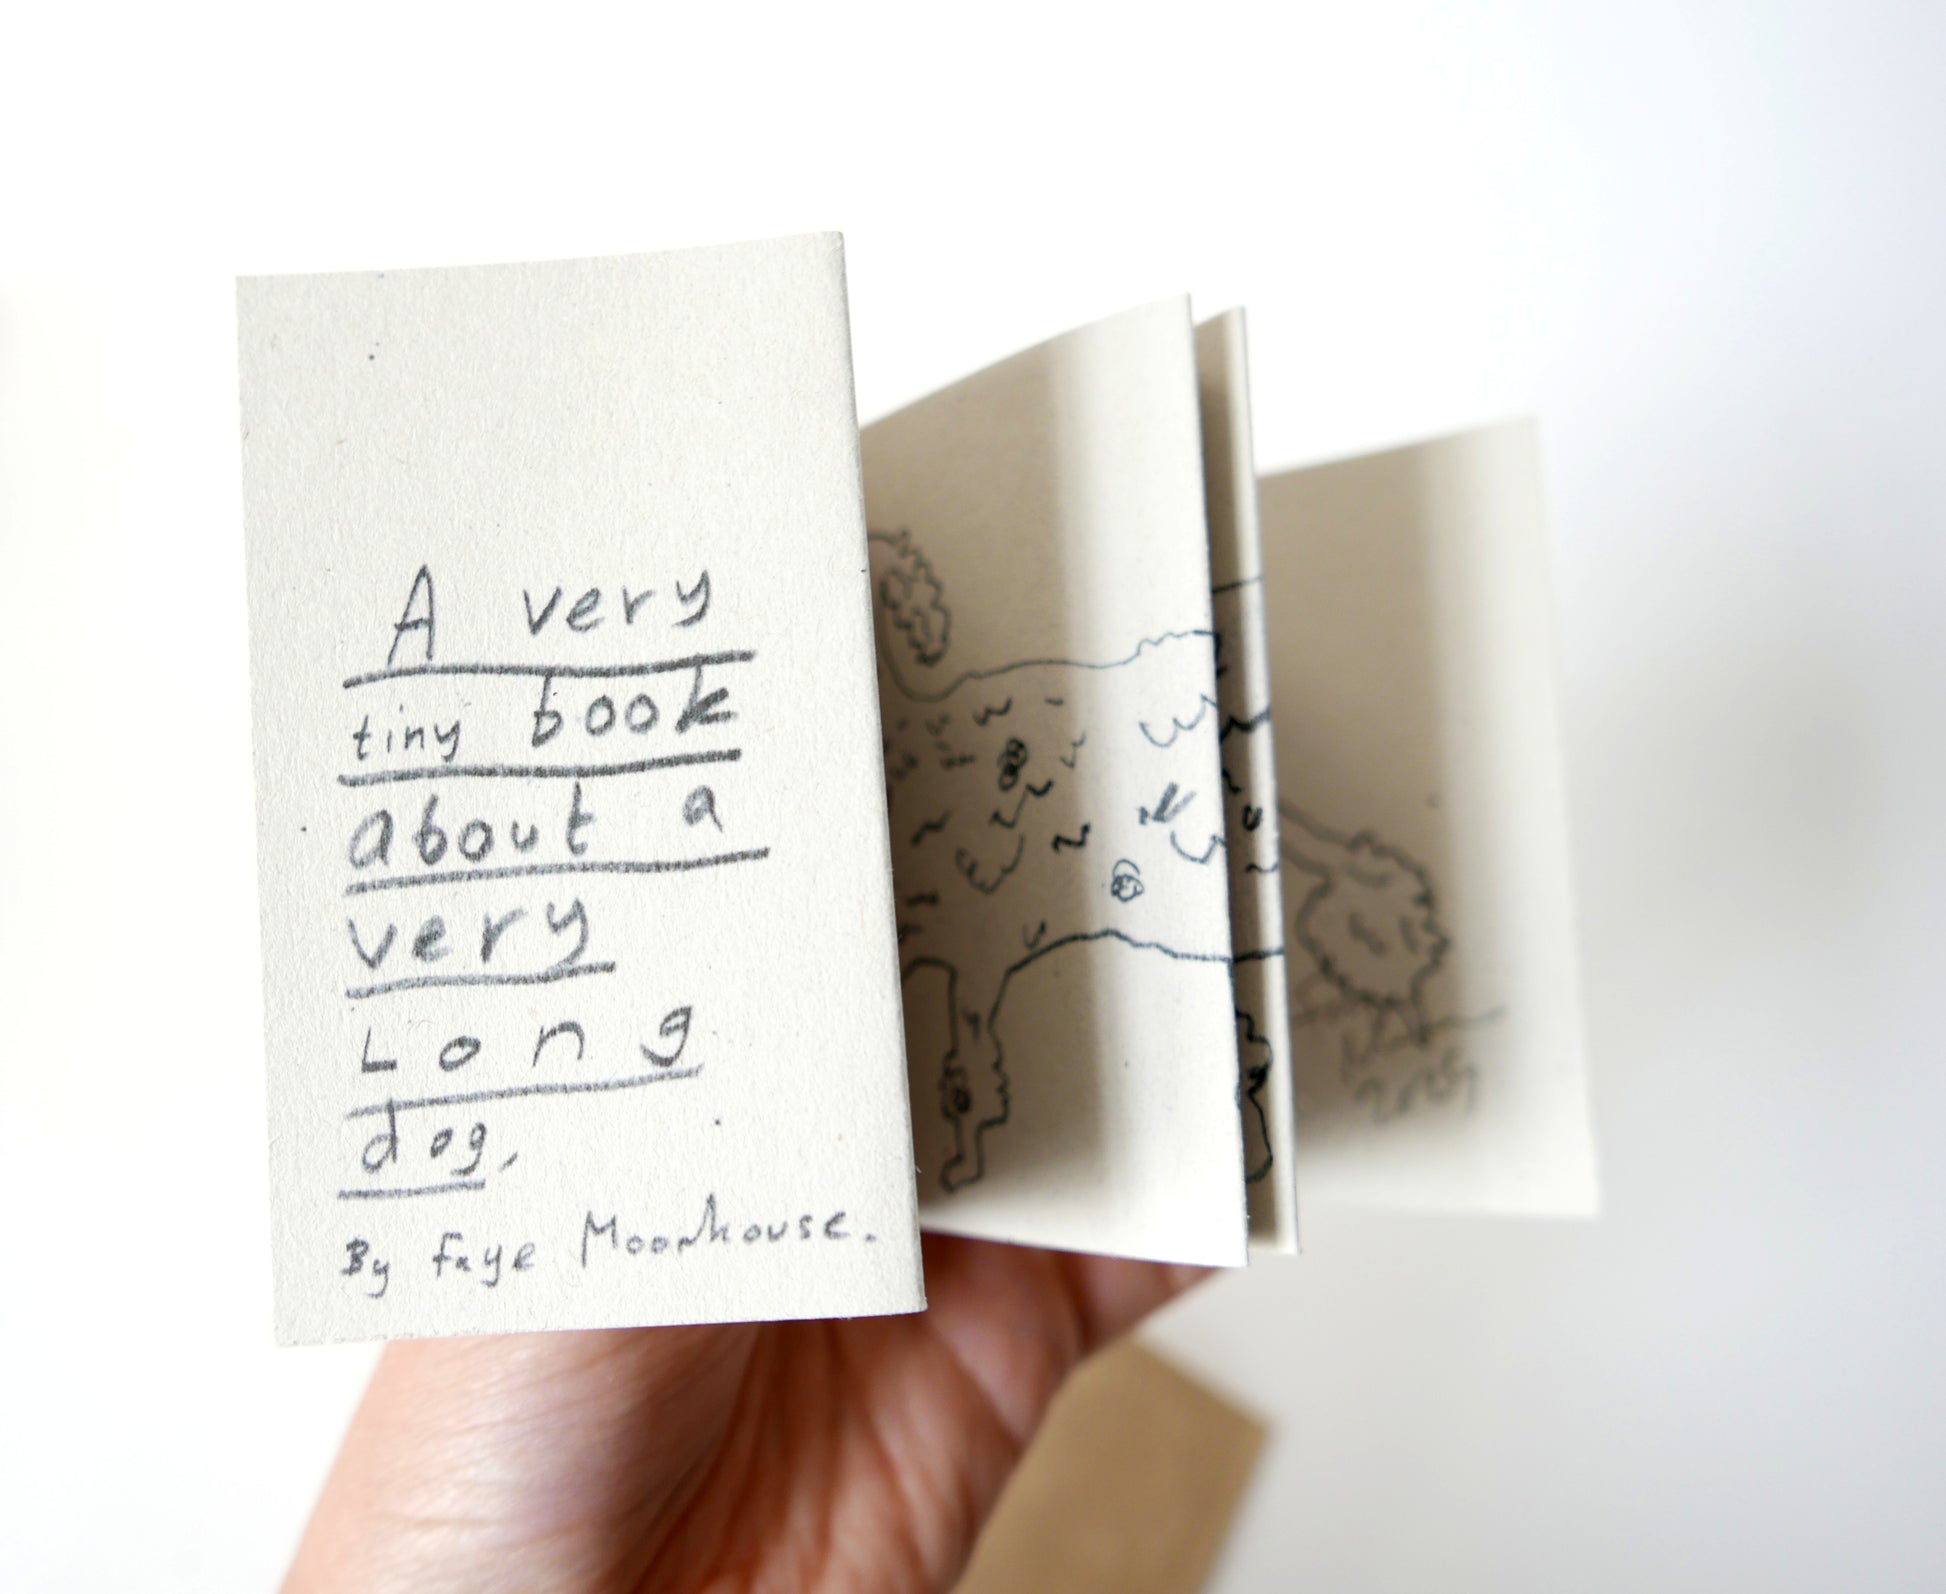 A very
tiny book
about a
very
Long
dog,
By Faye Moorhouse.